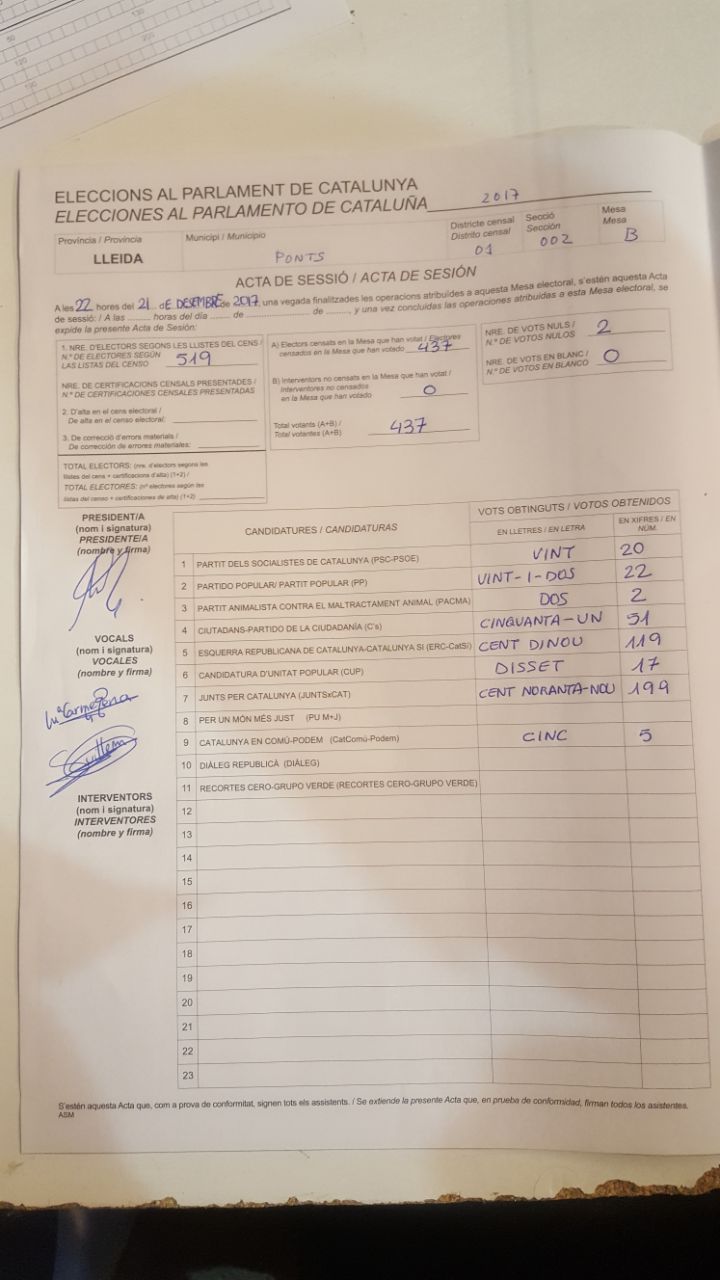 50
130
120
200
190
ELECCIONS AL PARLAMENT DE CATALUNYA
ELECCIONES AL PARLAMENTO DE CATALUÑA 2017
Provincia / Provincia
LLEIDA
Municipi / Municipio
PONTS
Districte censal
Distrito censal
01
Secció
Sección
002
Mesa
Mesa
B
ACTA DE SESSIÓ / ACTA DE SESIÓN
A les 22 hores del 21 de DESEMBRE de 2017, una vegada finalitzades les operacions atribuïdes a aquesta Mesa electoral, s'estén aquesta Acta
de sessió: / A las ........ horas del día ........ de ................ de ........, y una vez concluidas las operaciones atribuidas a esta Mesa electoral, se
expide la presente Acta de Sesión:
1. NRE. D'ELECTORS SEGONS LES LLISTES DEL CENS /
N.º DE ELECTORES SEGÚN
LAS LISTAS DEL CENSO 519
NRE. DE CERTIFICACIONS CENSALS PRESENTADES /
N.º DE CERTIFICACIONES CENSALES PRESENTADAS
2. D'alta en el cens electoral /
De alta en el censo electoral:
3. De correcció d'errors materials /
De corrección de errores materiales:
TOTAL ELECTORS: (nre. d'electors segons les
llistes del cens + certificacions d'alta) (1+2) /
TOTAL ELECTORES: (nº electores según las
listas del censo + certificaciones de alta) (1+2)
A) Electors censats en la Mesa que han votat / Electores
censados en la Mesa que han votado 437
B) Interventors no censats en la Mesa que han votat /
Interventores no censados
en la Mesa que han votado 0
Total votants (A+B) /
Total votantes (A+B) 437
NRE. DE VOTS NULS /
N.º DE VOTOS NULOS 2
NRE. DE VOTS EN BLANC /
N.º DE VOTOS EN BLANCO 0
PRESIDENT/A
(nom i signatura)
PRESIDENTE/A
(nombre y firma)
VOCALS
(nom i signatura)
VOCALES
(nombre y firma)
INTERVENTORS
(nom i signatura)
INTERVENTORES
(nombre y firma)
CANDIDATURES / CANDIDATURAS
VOTS OBTINGUTS / VOTOS OBTENIDOS
EN LLETRES / EN LETRA
EN XIFRES / EN NÚM.
1 PARTIT DELS SOCIALISTES DE CATALUNYA (PSC-PSOE) VINT 20
2 PARTIDO POPULAR/ PARTIT POPULAR (PP) VINT-I-DOS 22
3 PARTIT ANIMALISTA CONTRA EL MALTRACTAMENT ANIMAL (PACMA) DOS 2
4 CIUTADANS-PARTIDO DE LA CIUDADANÍA (C's) CINQUANTA-UN 51
5 ESQUERRA REPUBLICANA DE CATALUNYA-CATALUNYA SÍ (ERC-CatSí) CENT DINOU 119
6 CANDIDATURA D'UNITAT POPULAR (CUP) DISSET 17
7 JUNTS PER CATALUNYA (JUNTSxCAT) CENT NORANTA-NOU 199
8 PER UN MÓN MÉS JUST (PU M+J)
9 CATALUNYA EN COMÚ-PODEM (CatComú-Podem) CINC 5
10 DIÀLEG REPUBLICÀ (DIÀLEG)
11 RECORTES CERO-GRUPO VERDE (RECORTES CERO-GRUPO VERDE)
12
13
14
15
16
17
18
19
20
21
22
23
S'estén aquesta Acta que, com a prova de conformitat, signen tots els assistents. / Se extiende la presente Acta que, en prueba de conformidad, firman todos los asistentes.
ASM